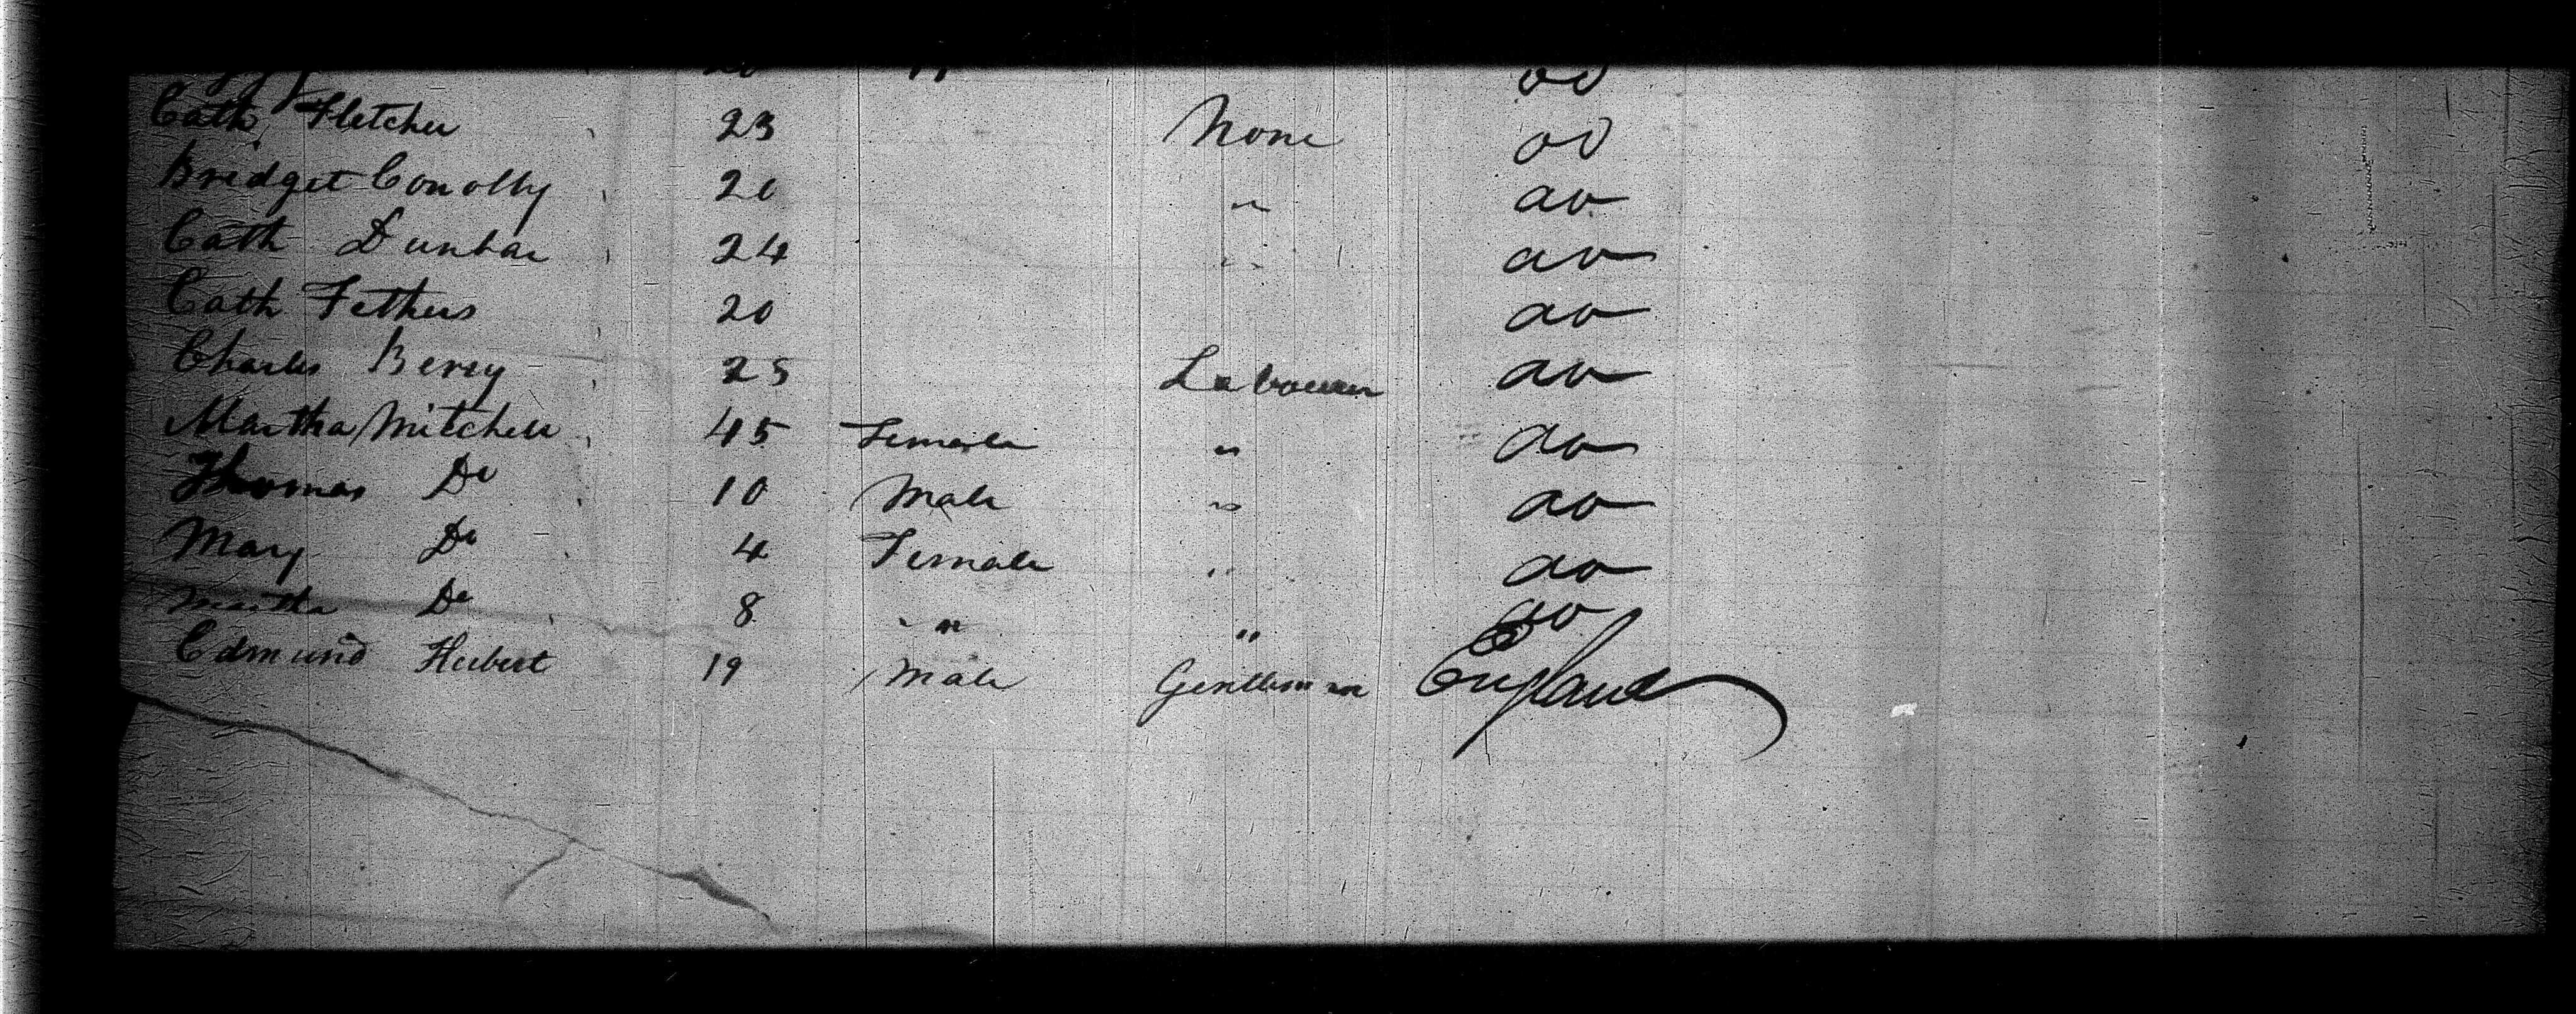 Cath Fletcher 23 None do
Bridget Conolly 20 " do
Cath Dunbar 24 " do
Cath Fethers 20 do
Charles Berry 25 Labourer do
Martha Mitchell 45 Female " do
Thomas Do 10 Male " do
Mary Do 4 Female " do
Martha Do 8 " " do
Edmund Herbert 19 Male Gentleman England